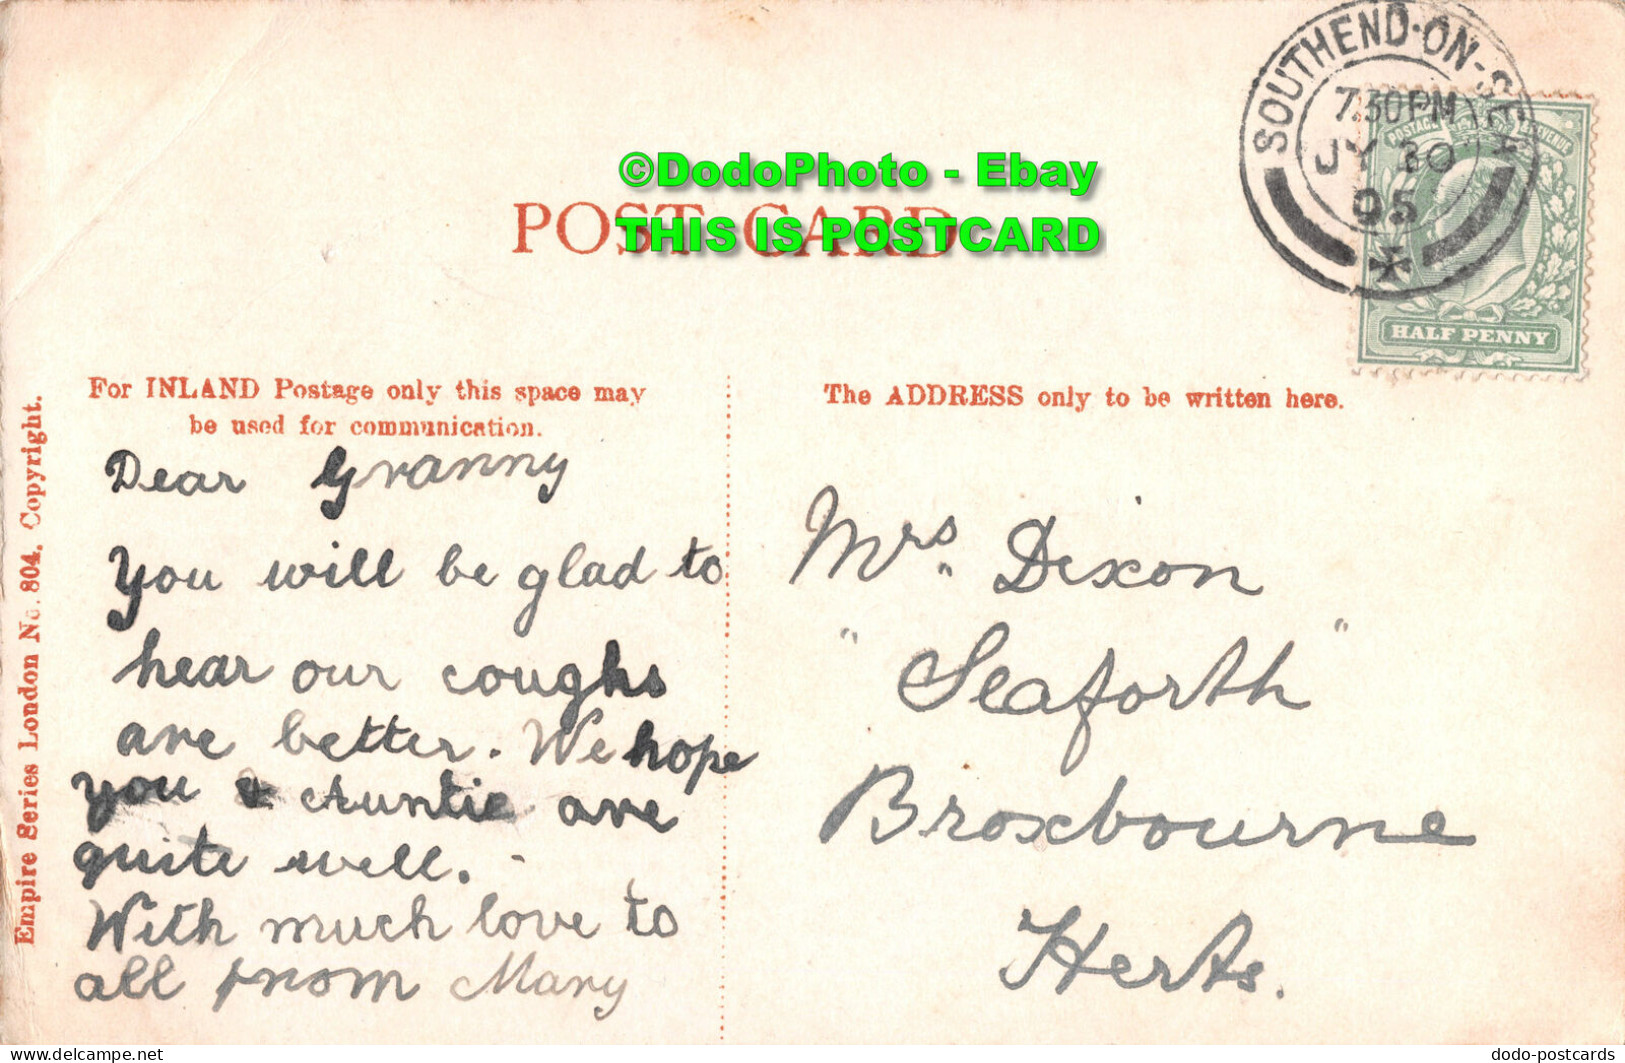 SOUTHEND-ON-SEA
7.30PM
JY 30
05
POSTAGE REVENUE
HALF PENNY
©DodoPhoto - Ebay
THIS IS POSTCARD
POST CARD
For INLAND Postage only this space may
be used for communication.
The ADDRESS only to be written here.
Empire Series London No. 804. Copyright.
Dear Granny
You will be glad to
hear our coughs
are better. We hope
you & Auntie are
quite well.
With much love to
all from Mary
Mrs. Dixon
"Seaforth"
Broxbourne
Herts.
www.delcampe.net
dodo-postcards